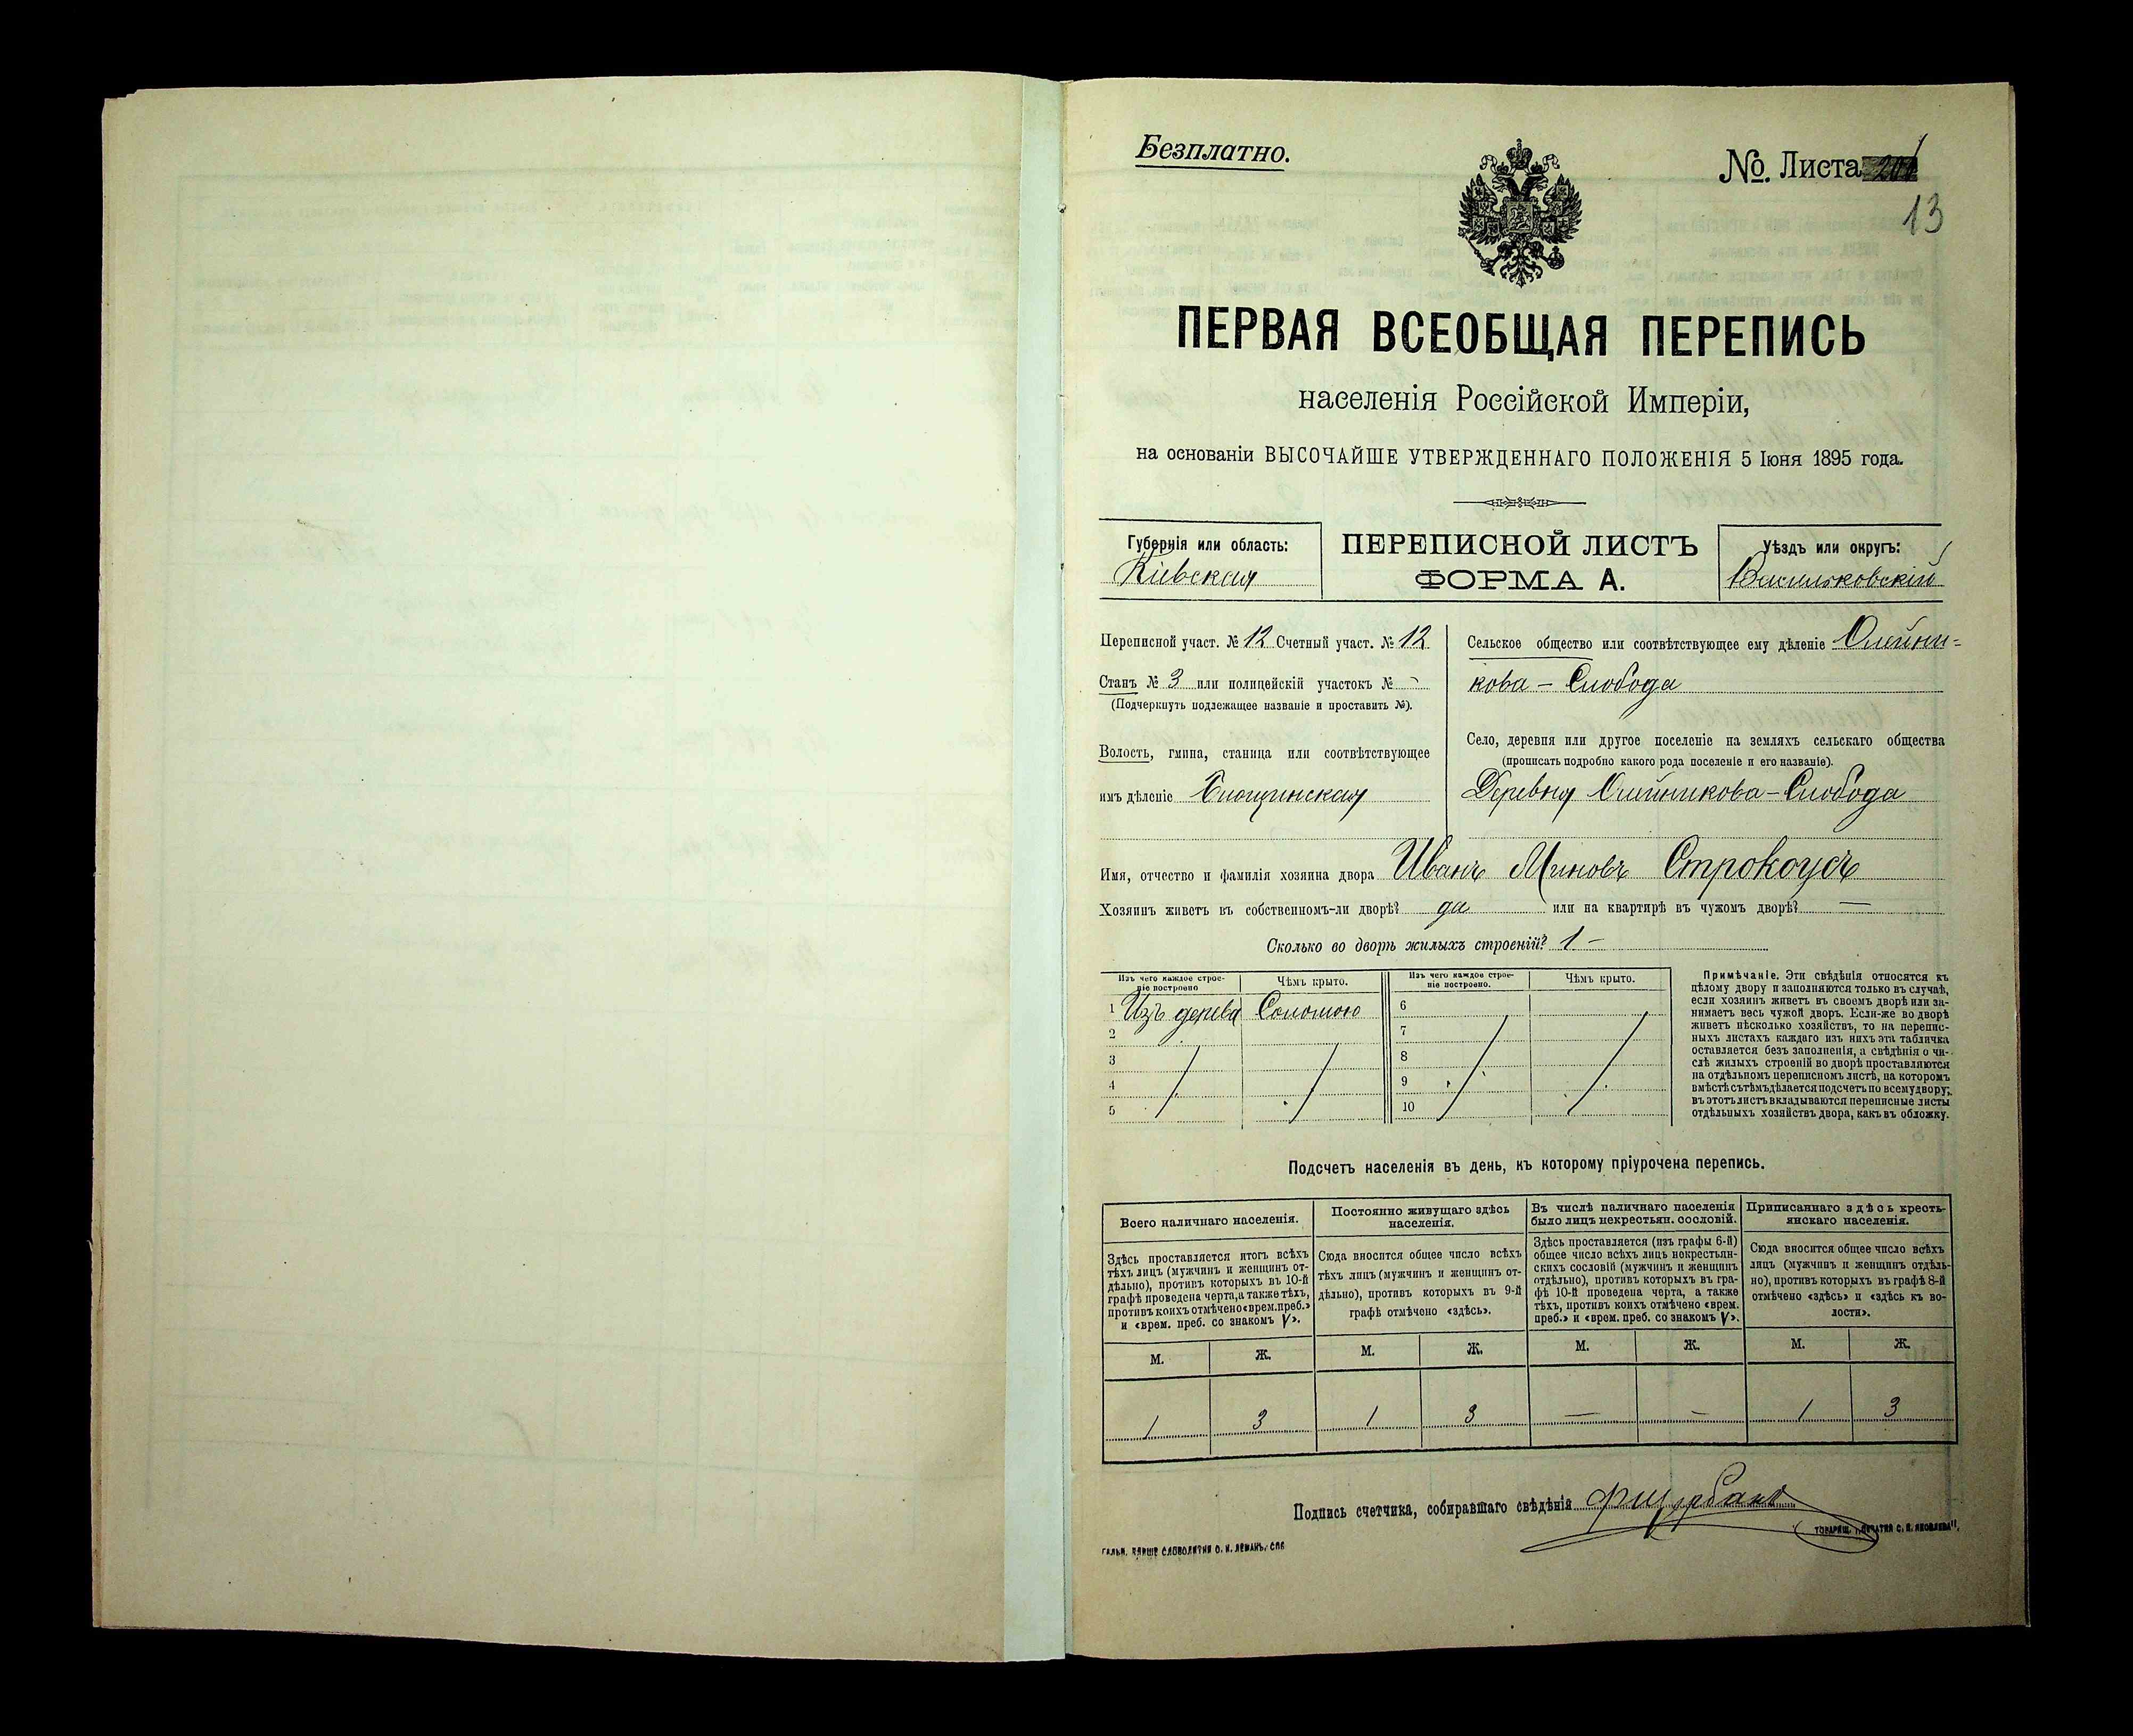 Безплатно.
№. Листа
13
ПЕРВАЯ ВСЕОБЩАЯ ПЕРЕПИСЬ
населенія Россійской Имперіи,
на основаніи ВЫСОЧАЙШЕ УТВЕРЖДЕННАГО ПОЛОЖЕНІЯ 5 Іюня 1895 года.
Губернія или область:
Кіевская
ПЕРЕПИСНОЙ ЛИСТЪ
ФОРМА А.
Уѣздъ или округъ:
Васильковскій
Переписной участ. № 12 Счетный участ. № 12
Станъ № 3 или полицейскій участокъ № -
(Подчеркнуть подлежащее названіе и проставить №).
Волость, гмина, станица или соотвѣтствующее
имъ дѣленіе
Сельское общество или соотвѣтствующее ему дѣленіе Олейни-
кова - Слобода
Село, деревня или другое поселеніе на земляхъ сельскаго общества
(прописать подробно какого рода поселеніе и его названіе).
Деревня Олейникова - Слобода
Имя, отчество и фамилія хозяина двора Иванъ Миновъ Строкоусъ
Хозяинъ живетъ въ собственномъ-ли дворѣ? да или на квартирѣ въ чужомъ дворѣ? —
Сколько во дворѣ жилыхъ строеній? 1 -
Изъ чего каждое строе-
ніе построено
Чѣмъ крыто.
Изъ чего каждое строе-
ніе построено.
Чѣмъ крыто.
1 Изъ дерева Соломою 6
2 7
3 8
4 9
5 10
Примѣчаніе. Эти свѣдѣнія относятся къ
цѣлому двору и заполняются только въ случаѣ,
если хозяинъ живетъ въ своемъ дворѣ или за-
нимаетъ весь чужой дворъ. Если-же во дворѣ
живетъ нѣсколько хозяйствъ, то на перепис-
ныхъ листахъ каждаго изъ нихъ эта табличка
оставляется безъ заполненія, а свѣдѣнія о чи-
слѣ жилыхъ строеній во дворѣ проставляются
на отдѣльномъ переписномъ листѣ, на которомъ
вмѣстѣ съ тѣмъ дѣлается подсчетъ по всему двору;
въ этотъ листъ вкладываются переписные листы
отдѣльныхъ хозяйствъ двора, какъ въ обложку.
Подсчетъ населенія въ день, къ которому пріурочена перепись.
Всего наличнаго населенія.
Здѣсь проставляется итогъ всѣхъ
тѣхъ лицъ (мужчинъ и женщинъ от-
дѣльно), противъ которыхъ въ 10-й
графѣ проведена черта, а также тѣхъ,
противъ коихъ отмѣчено «врем. преб.»
и «врем. преб. со знакомъ V».
Постоянно живущаго здѣсь
населенія.
Сюда вносится общее число всѣхъ
тѣхъ лицъ (мужчинъ и женщинъ от-
дѣльно), противъ которыхъ въ 9-й
графѣ отмѣчено «здѣсь».
Въ числѣ наличнаго населенія
было лицъ некрестьян. сословій.
Здѣсь проставляется (изъ графы 6-й)
общее число всѣхъ лицъ некрестьян-
скихъ сословій (мужчинъ и женщинъ
отдѣльно), противъ которыхъ въ гра-
фѣ 10-й проведена черта, а также
тѣхъ, противъ коихъ отмѣчено «врем.
преб.» и «врем. преб. со знакомъ V».
Приписаннаго здѣсь кресть-
янскаго населенія.
Сюда вносится общее число всѣхъ
лицъ (мужчинъ и женщинъ отдѣль-
но), противъ которыхъ въ графѣ 8-й
отмѣчено «здѣсь» и «здѣсь къ во-
лости».
М. Ж. М. Ж. М. Ж. М. Ж.
1 3 1 3 — — 1 3
Подпись счетчика, собиравшаго свѣдѣнія